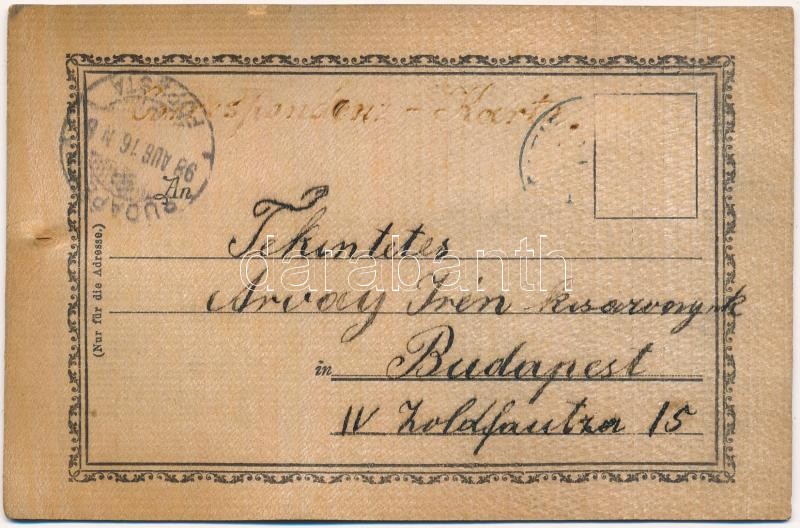 Correspondenz-Karte.
BUDAPEST
FŐPOSTA
99 AUG 16 N 8
An
Tekintetes
Arvay Irén kisasszonynk
in Budapest
IV Zoldfautza 15
(Nur für die Adresse.)
darabanth